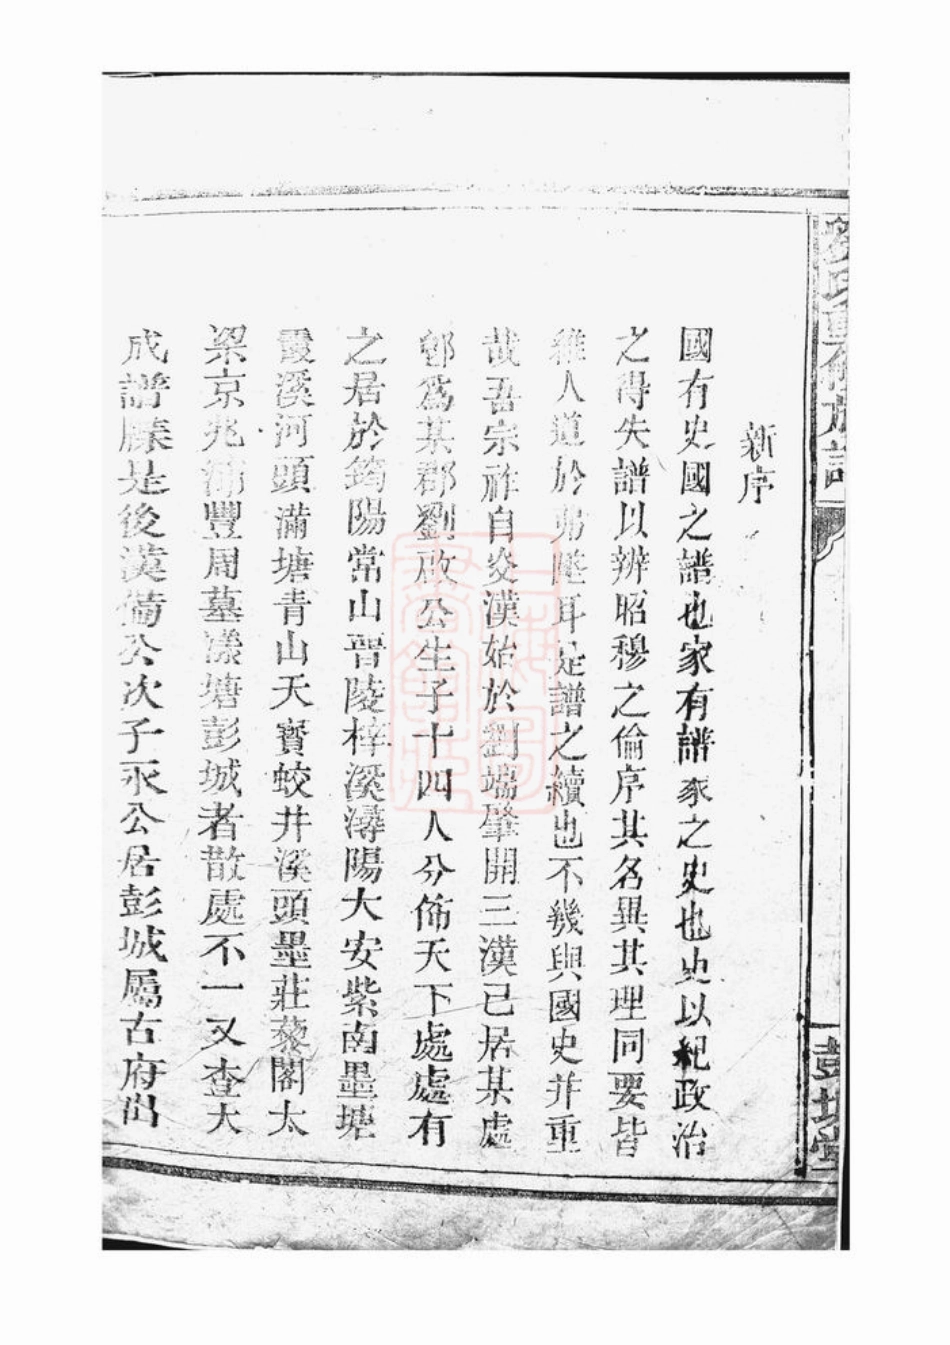 新序
國有史國之譜也家有譜家之史也史以紀政治
之得失譜以辨昭穆之倫序其名異其理同要皆
維人道於弗墜耳是譜之續也不幾與國史并重
哉吾宗祚自炎漢始於劉端肇開三漢已居某處
郡爲某郡劉啟公生子十四人分佈天下處處有
之居於筠陽常山晉陵梓溪潯陽大安紫南墨塘
霞溪河頭滿塘青山天寶蛟井溪頭墨莊藜閣太
梁京兆浦豐周墓漾塘彭城者散處不一又查大
成譜牒是後漢葡公次子永公居彭城屬古府出
氏重修族譜
彭城堂